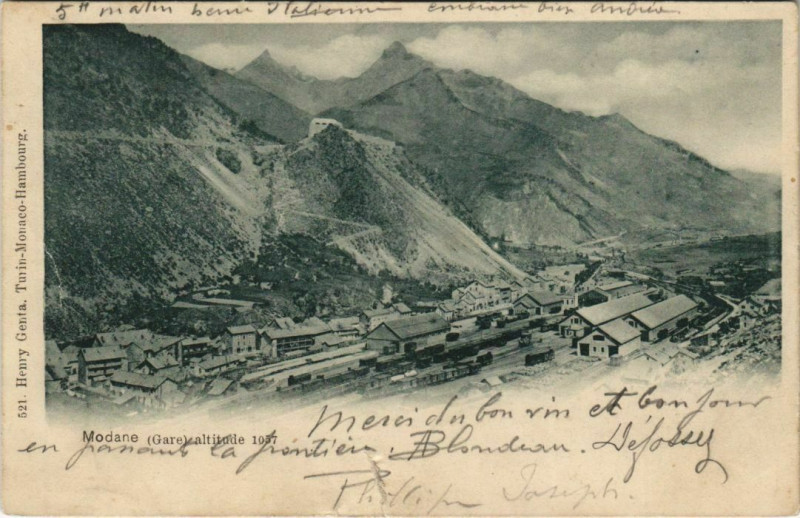 5h matin heure Italienne embrasse bien Andrée
521. Henry Genta. Turin-Monaco-Hambourg.
Merci du bon vin et bonjour
Modane (Gare) altitude 1057
en passant la frontière. Blondeau. Défossey
Phillip Joseph.